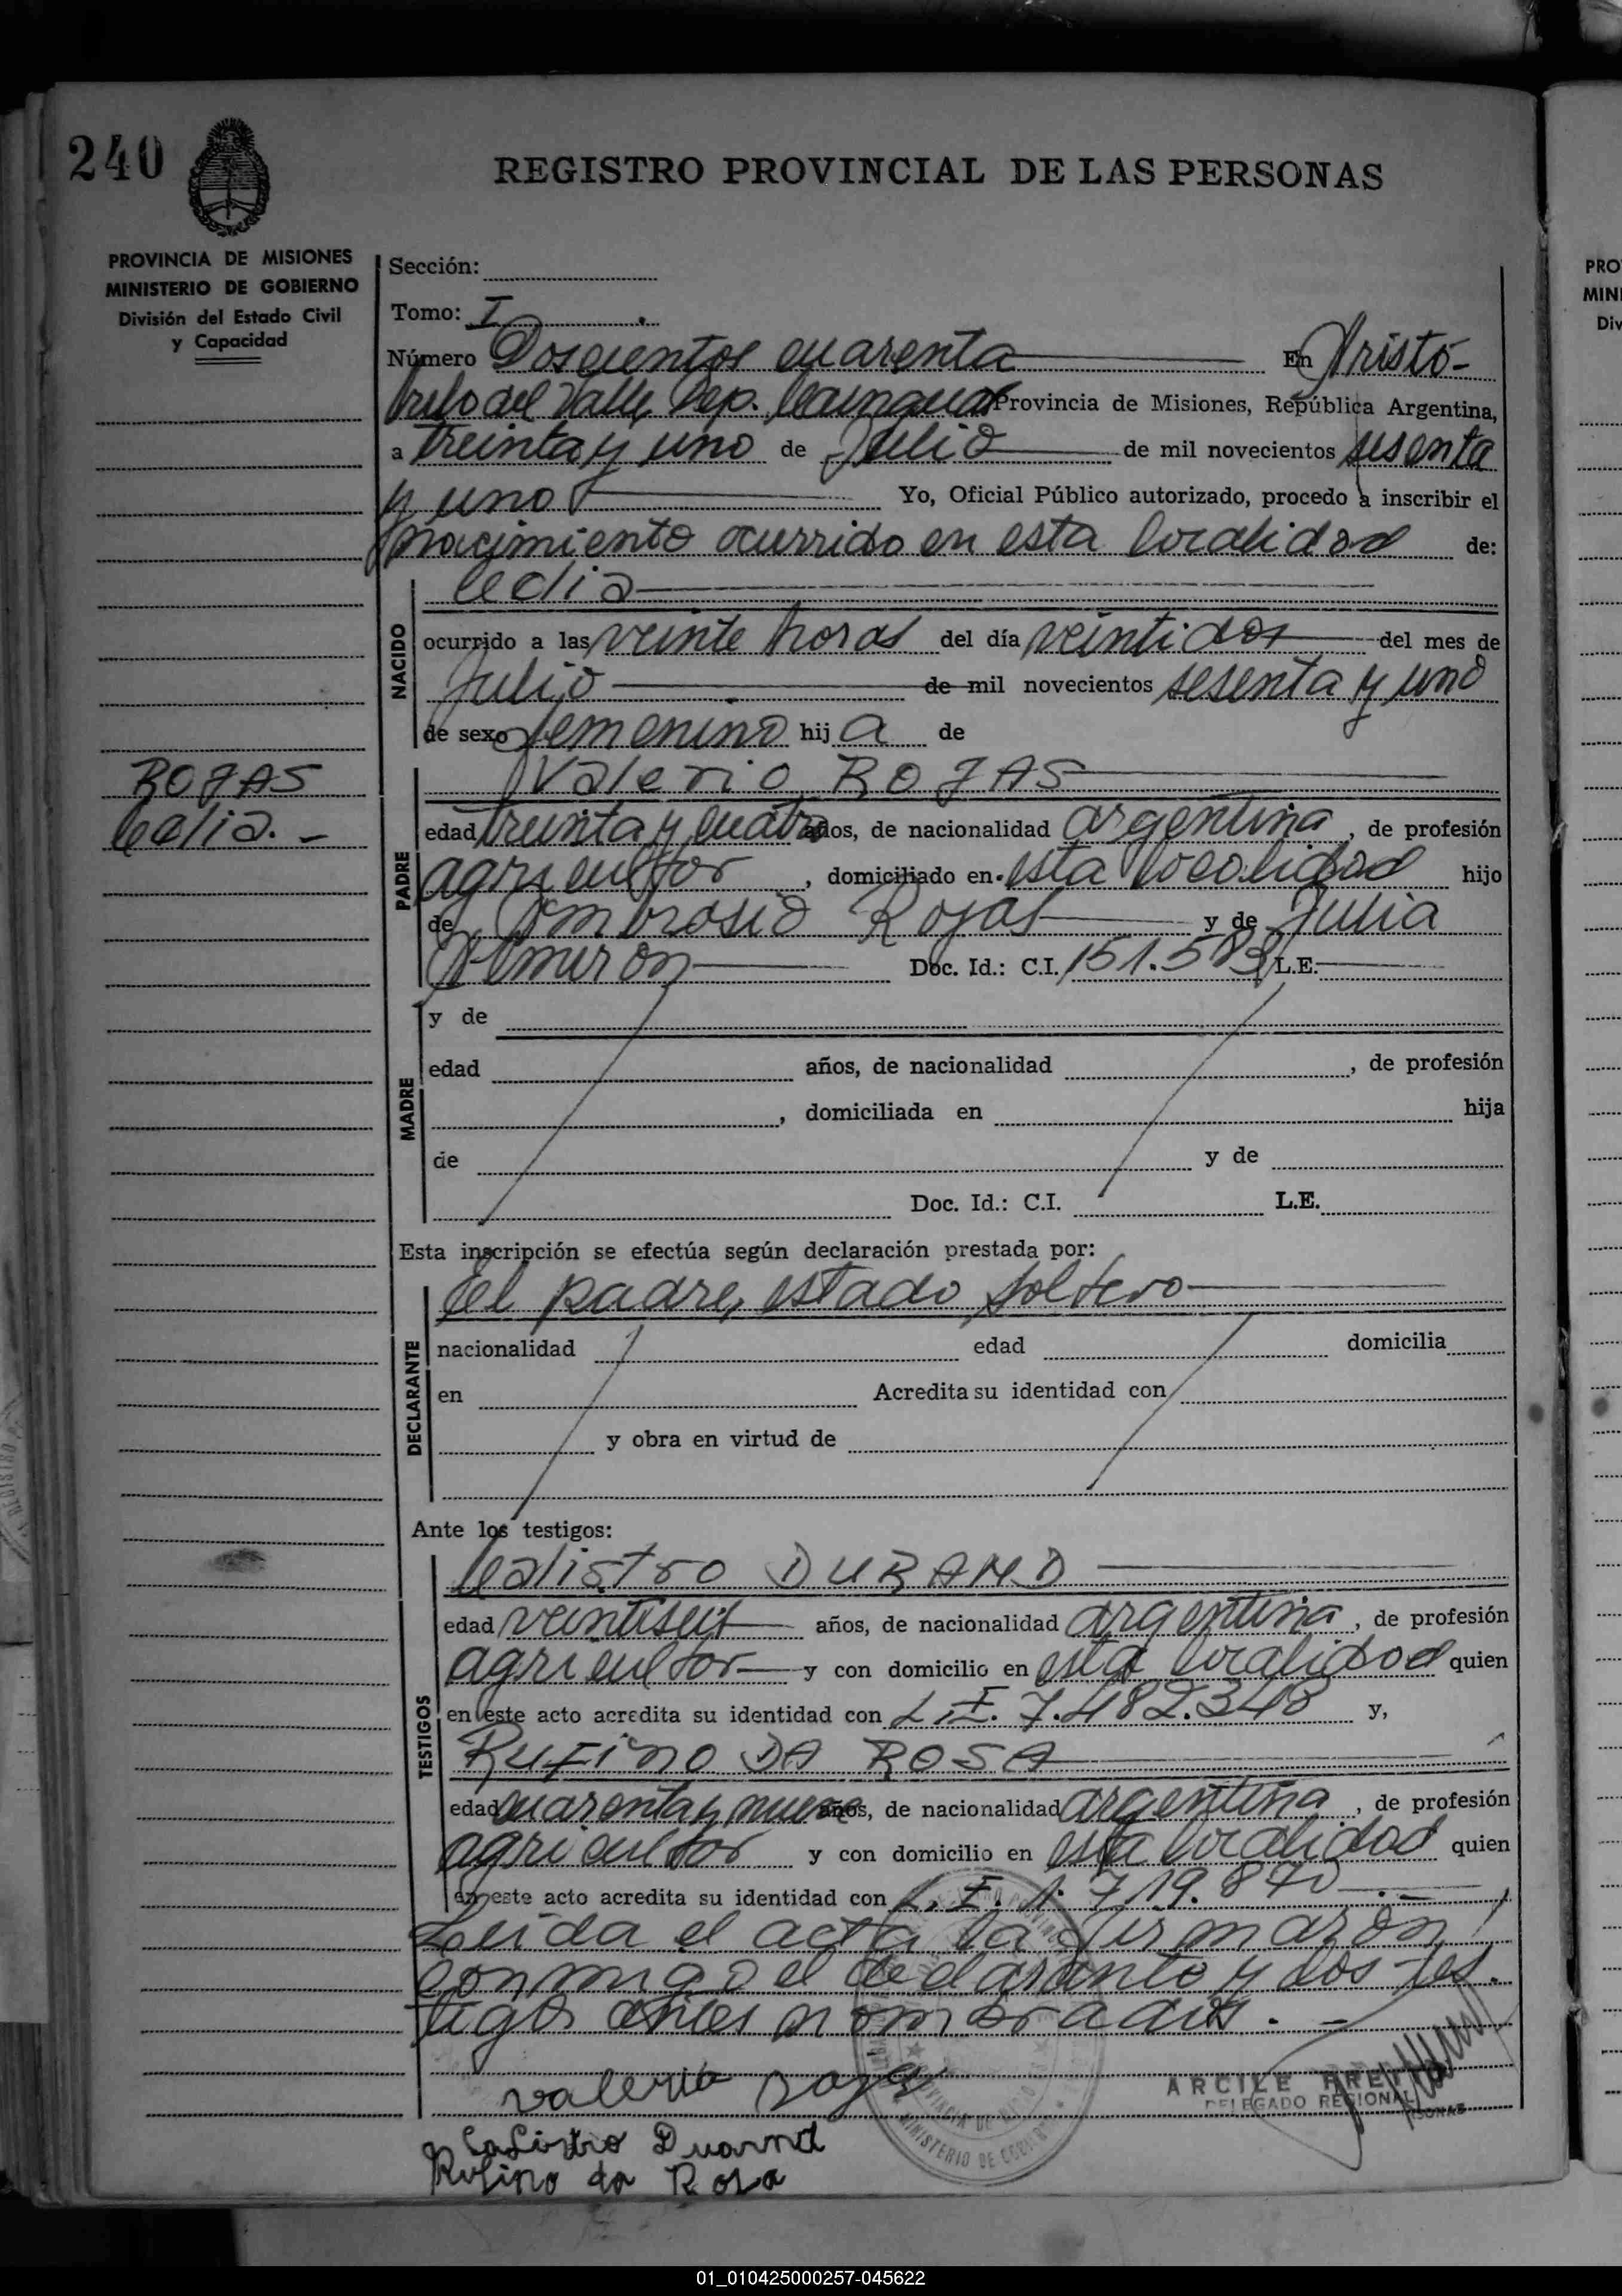 240
REGISTRO PROVINCIAL DE LAS PERSONAS
PROVINCIA DE MISIONES
MINISTERIO DE GOBIERNO
División del Estado Civil
y Capacidad
Sección:
Tomo: I
Número Doscientos cuarenta En Aristó-
bulo del Valle, Dep. Cainguas Provincia de Misiones, República Argentina,
a treinta y uno de Julio de mil novecientos sesenta
y uno Yo, Oficial Público autorizado, procedo a inscribir el
nacimiento ocurrido en esta localidad de:
NACIDO
Celia
ocurrido a las veinte horas del día veintidos del mes de
Julio de mil novecientos sesenta y uno
de sexo femenino hij a de
ROJAS
Celia. -
PADRE
Valerio ROJAS
edad treinta y cuatro años, de nacionalidad argentina, de profesión
agricultor, domiciliado en esta localidad hijo
de Ambrosio Rojas y de Julia
Doc. Id.: C.I. 151.583 L.E.
MADRE
y de
edad años, de nacionalidad , de profesión
, domiciliada en hija
de y de
Doc. Id.: C.I. L.E.
Esta inscripción se efectúa según declaración prestada por:
DECLARANTE
El padre, estado soltero
nacionalidad edad domicilia
en Acredita su identidad con
y obra en virtud de
Ante los testigos:
TESTIGOS
Calistro DURAND
edad veintiseis años, de nacionalidad argentina, de profesión
agricultor y con domicilio en esta localidad quien
en este acto acredita su identidad con L.E. 7.482.348 y,
Rufino DA ROSA
edad cuarenta y nueve años, de nacionalidad argentina, de profesión
agricultor y con domicilio en esta localidad quien
en este acto acredita su identidad con L.E. 1.719.870 -.-
Leida el acta la firmarón
conmigo el declarante y dos tes-
tigos antes nombrados. -
valerio rojas
ARCILE
DELEGADO REGIONAL
MINISTERIO DE GOBIERNO
Calistro Duarnd
Rufino da Rosa
PRO
MINI
Div
01_010425000257-045622